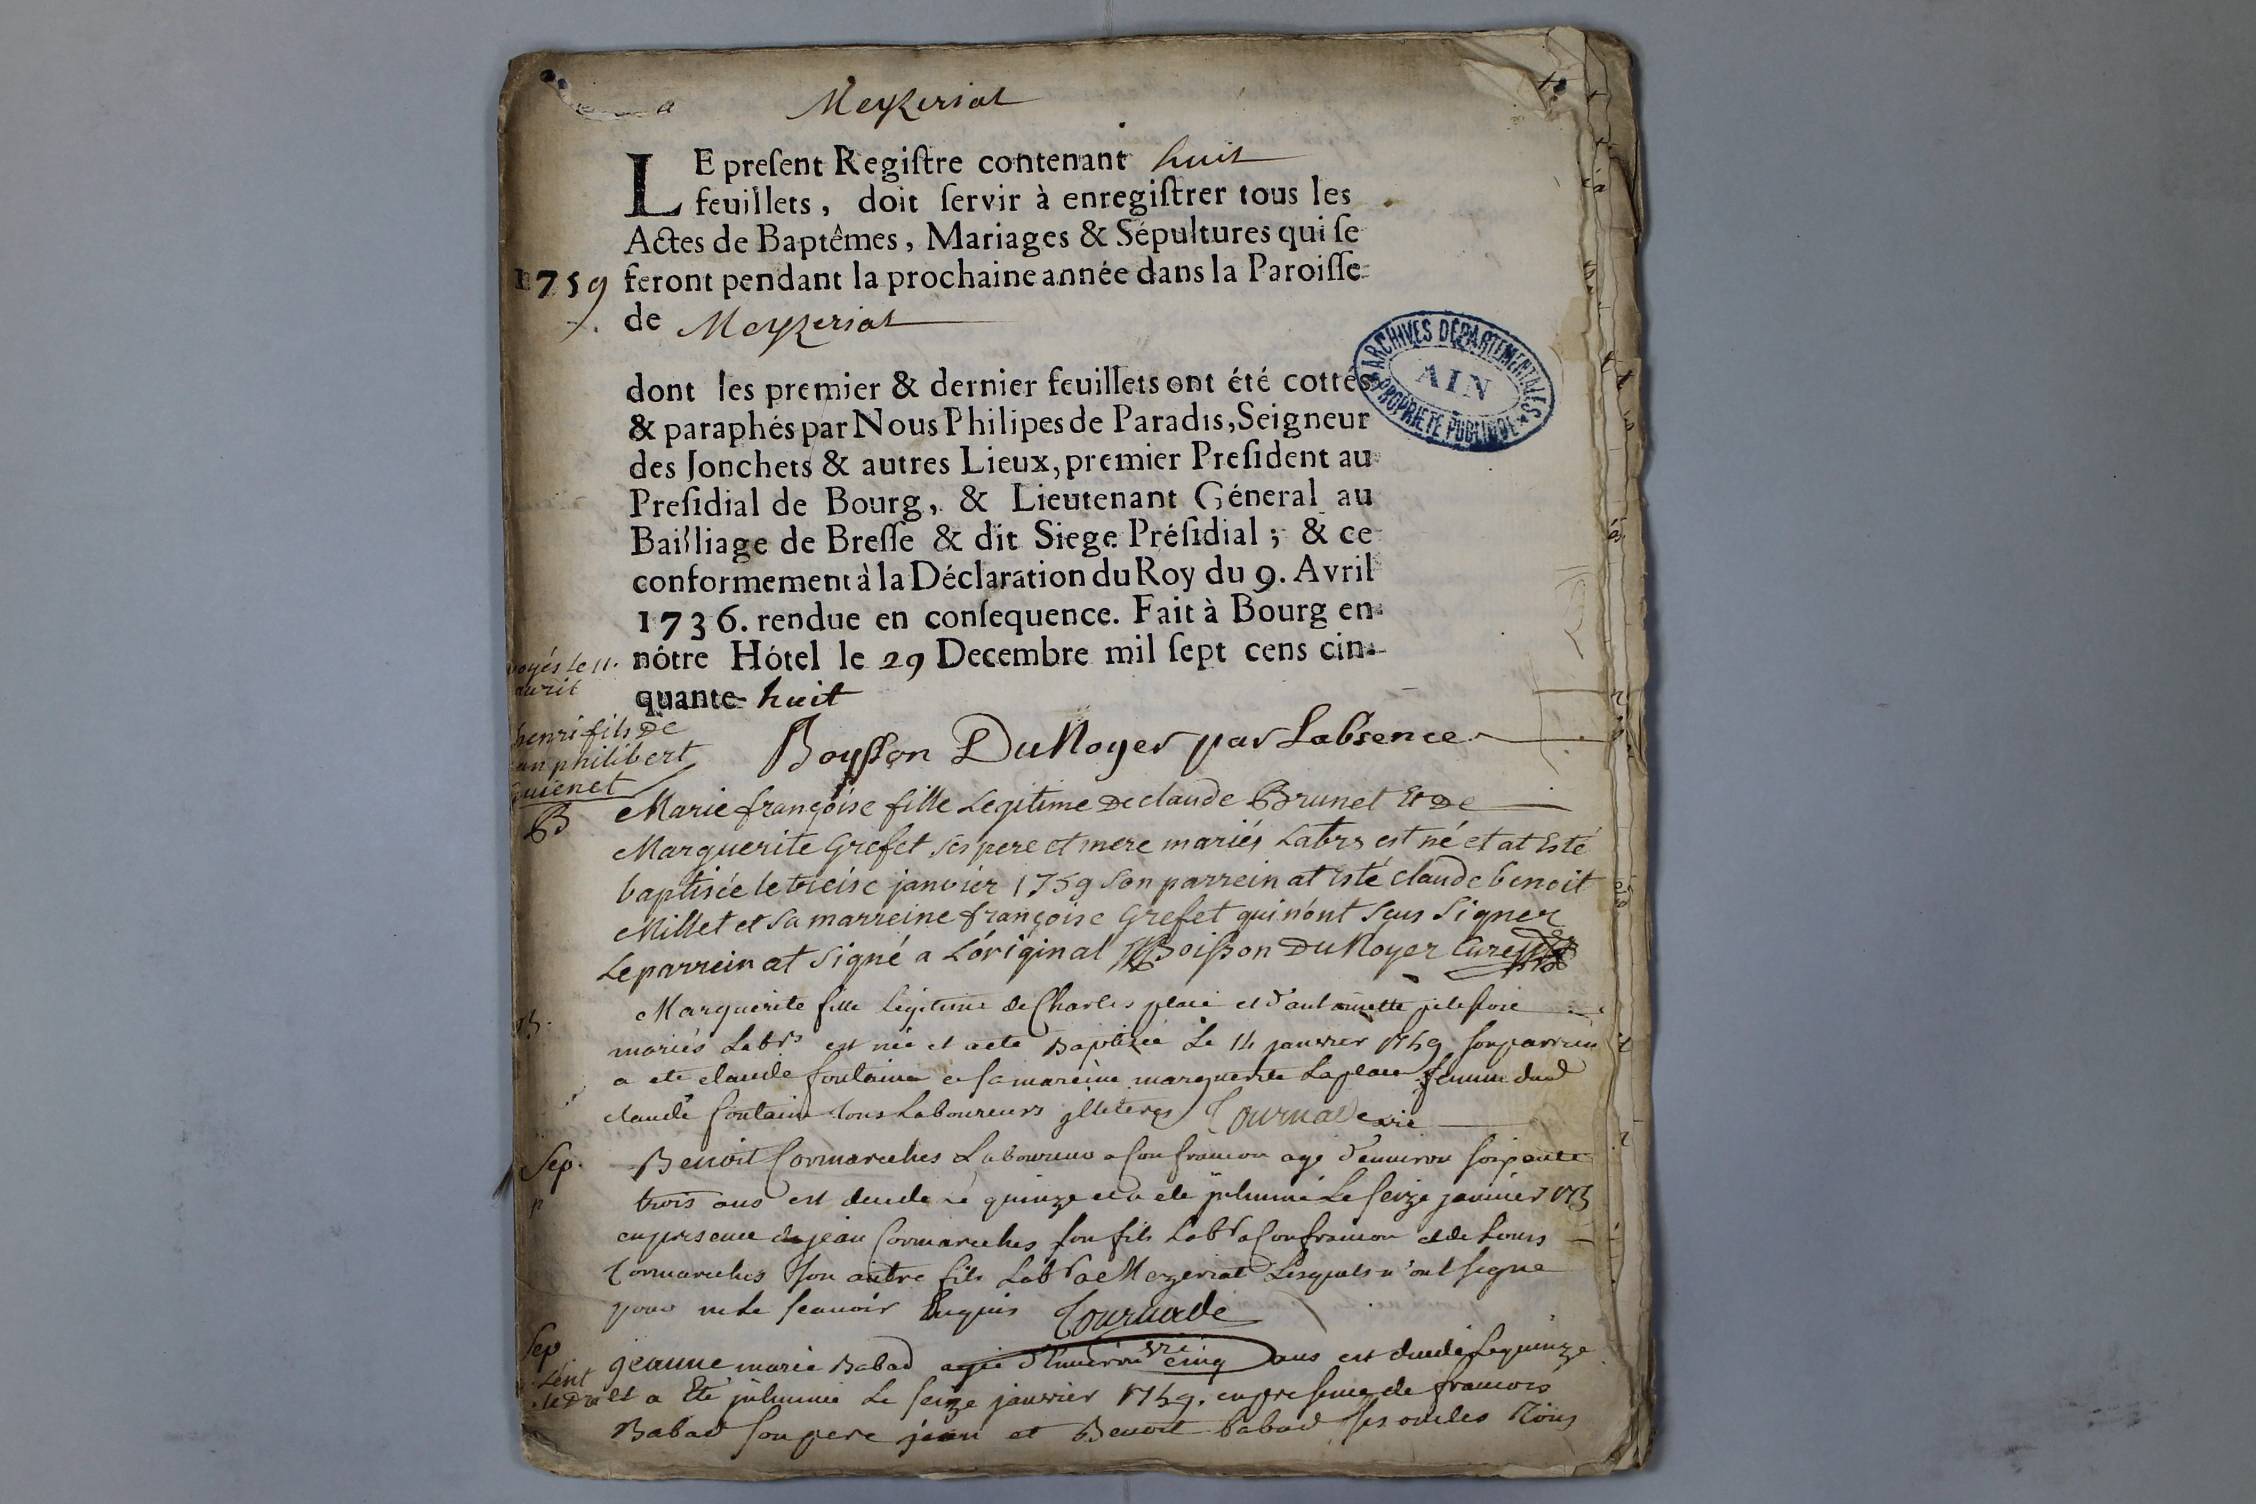 Meyzeriat
LE preſent Regiſtre contenant huit
feuillets, doit ſervir à enregiſtrer tous les
Actes de Baptêmes, Mariages & Sépultures qui ſe
1759 feront pendant la prochaine année dans la Paroiſſe
de Meyzeriat
dont les premier & dernier feuillets ont été cottés
& paraphés par Nous Philipes de Paradis, Seigneur
des Jonchets & autres Lieux, premier Preſident au
Preſidial de Bourg, & Lieutenant Géneral au
Bailliage de Breſſe & dit Siege Préſidial ; & ce
conformement à la Déclaration du Roy du 9. Avril
1736. rendue en conſequence. Fait à Bourg en
nôtre Hôtel le 29 Decembre mil ſept cens cin-
quante-huit
ARCHIVES DÉPARTEMENTALES
AIN
PROPRIÉTÉ PUBLIQUE
voyés le 11.
avril
henri fils De
philibert
guienet
Boysson DuNoyer par Labsence
B Marie françoise fille Legitime De claude Brunet Et De
Marguerite Grefet ses pere et mere mariés Labrs est né et at Esté
baptisée le treise janvier 1759 son parrein at esté claude benoit
Millet et sa marreine françoise Grefet qui n'ont sçus signer
Le parrein at signé a L'original Boisson DuNoyer Curé
B. Marguerite fille legitime de Charles place et d'antoinette
mariés Labrs est née et a eté Baptizée Le 14 janvier 1759 son parrein
a eté claude fontaine et sa mareine marguerite Laplace femme dud
claude fontaine tous Laboureurs illiteres Tournade vic
Sep. Benoit Cormareches Laboureur a Confrancon agé d'environ soixante
trois ans est decedé Le quinze et a eté inhumé Le seize janvier
en presence de jean Cormareches son fils Labr a Confrancon et de Louis
Cormareches son autre fils Labr a Mezeriat Lesquels n'ont signé
pour ne le scavoir Enquis Tournade
vic
Sep jeanne marie Babad agée d'environ cinq ans est decedé Le quinze
et a Eté inhumée Le seize janvier 1759. en presence de francois
Babad son pere jean et Benoit babad ses oncles Tous